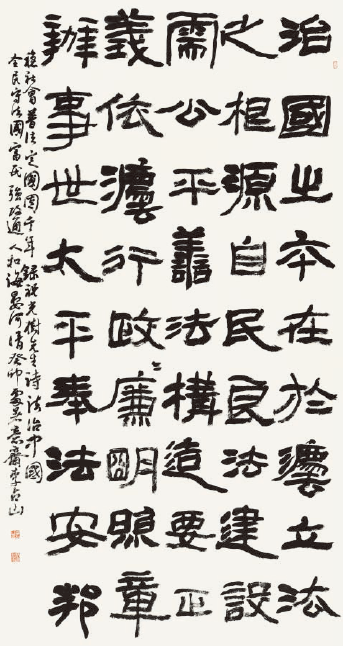 治國之夲在於灋立法
之根源自民良法建設
需公平善法構造要正
義依灋行政〻廉明照章
辦事世太平奉法安邦
穩社會普法定國千年錄光樹先生詩法治中國
全民守法國富民強政通人和海晏河清癸卯夏山